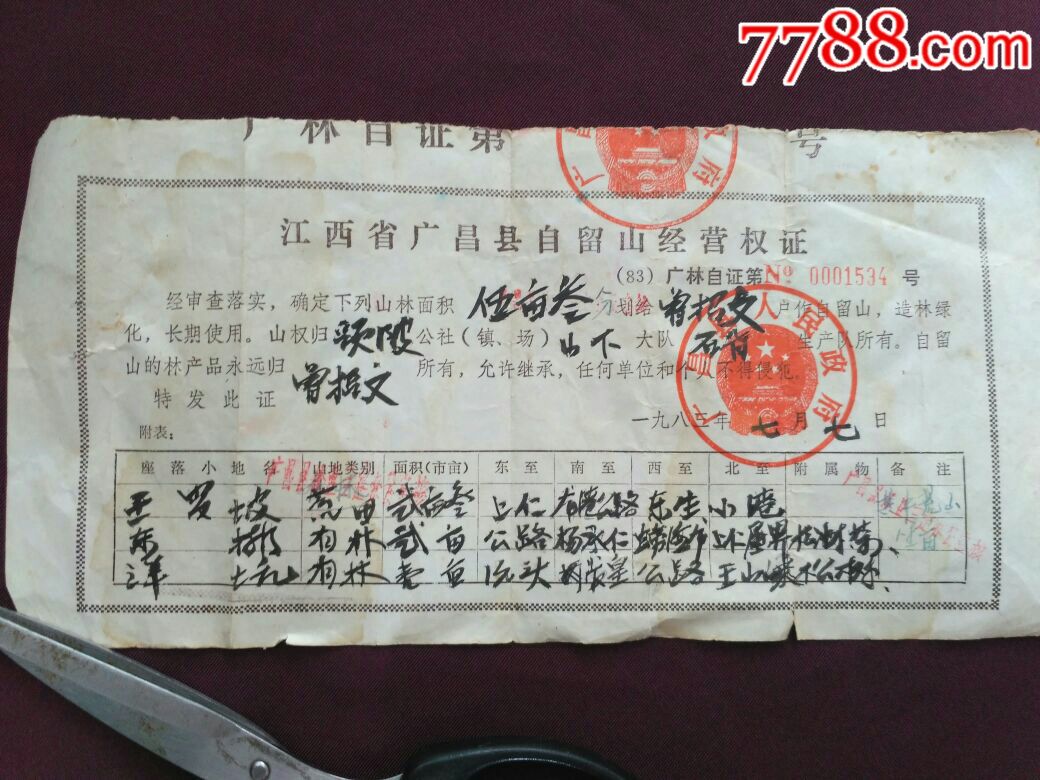 7788.com
广林自证第 号
江西省广昌县自留山经营权证
(83) 广林自证第№ 0001534 号
经审查落实,确定下列山林面积 伍亩叁 分划给 曾招文 户作自留山,造林绿
化,长期使用。山权归 头陂 公社(镇、场) 山下 大队 石背 生产队所有。自留
山的林产品永远归 曾招文 所有,允许继承,任何单位和个人不得侵犯。
特发此证
一九八三年 七 月 七 日
附表:
座落小地名 山地类别 面积(市亩) 东至 南至 西至 北至 附属物 备注
坡 荒田 贰亩叁 上仁 公路 东生 小
东 排 有林 贰亩 公路 杨承仁
洋 坑 有林 壹亩 坑头 公路